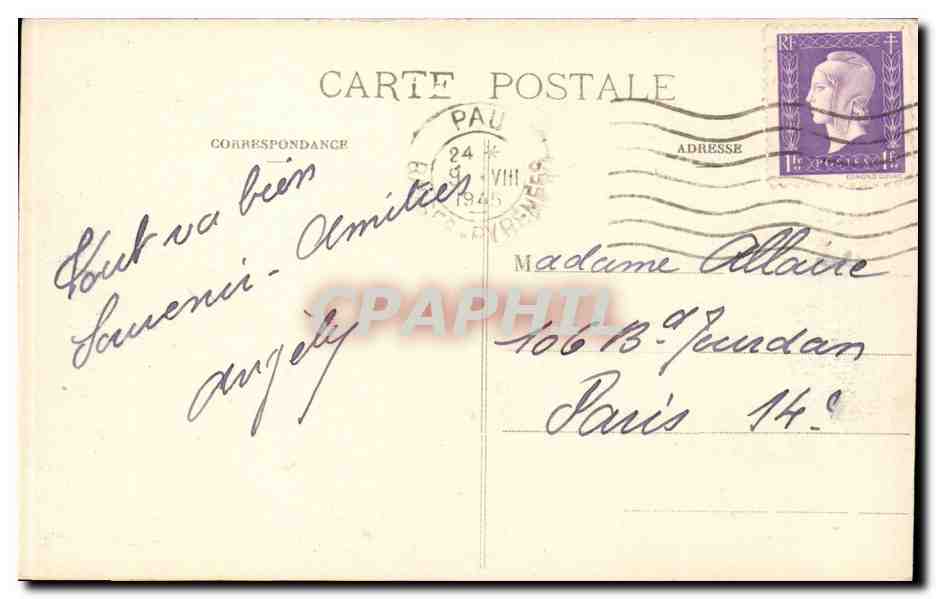 CARTE POSTALE
CORRESPONDANCE
ADRESSE
PAU
24 *
9 VIII
1945
BASSES-PYRENEES
RF
1F POSTES 1F
Tout va bien
Souvenir - Amitiés
Angèly
CPAPHIL
Madame Allaire
106 Bd Jourdan
Paris 14e